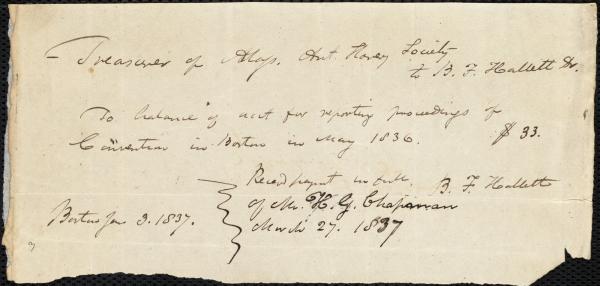 Treasurer of Mass. Ant. Slavery Society
to B. F. Hallett Dr.
To balance of acct for reporting proceedings of
Convention in Boston in May 1836. $33.
Recd payment in full. B. F. Hallett
of Mr. H. G. Chapman
Boston Jan 3. 1837.
March 27. 1837